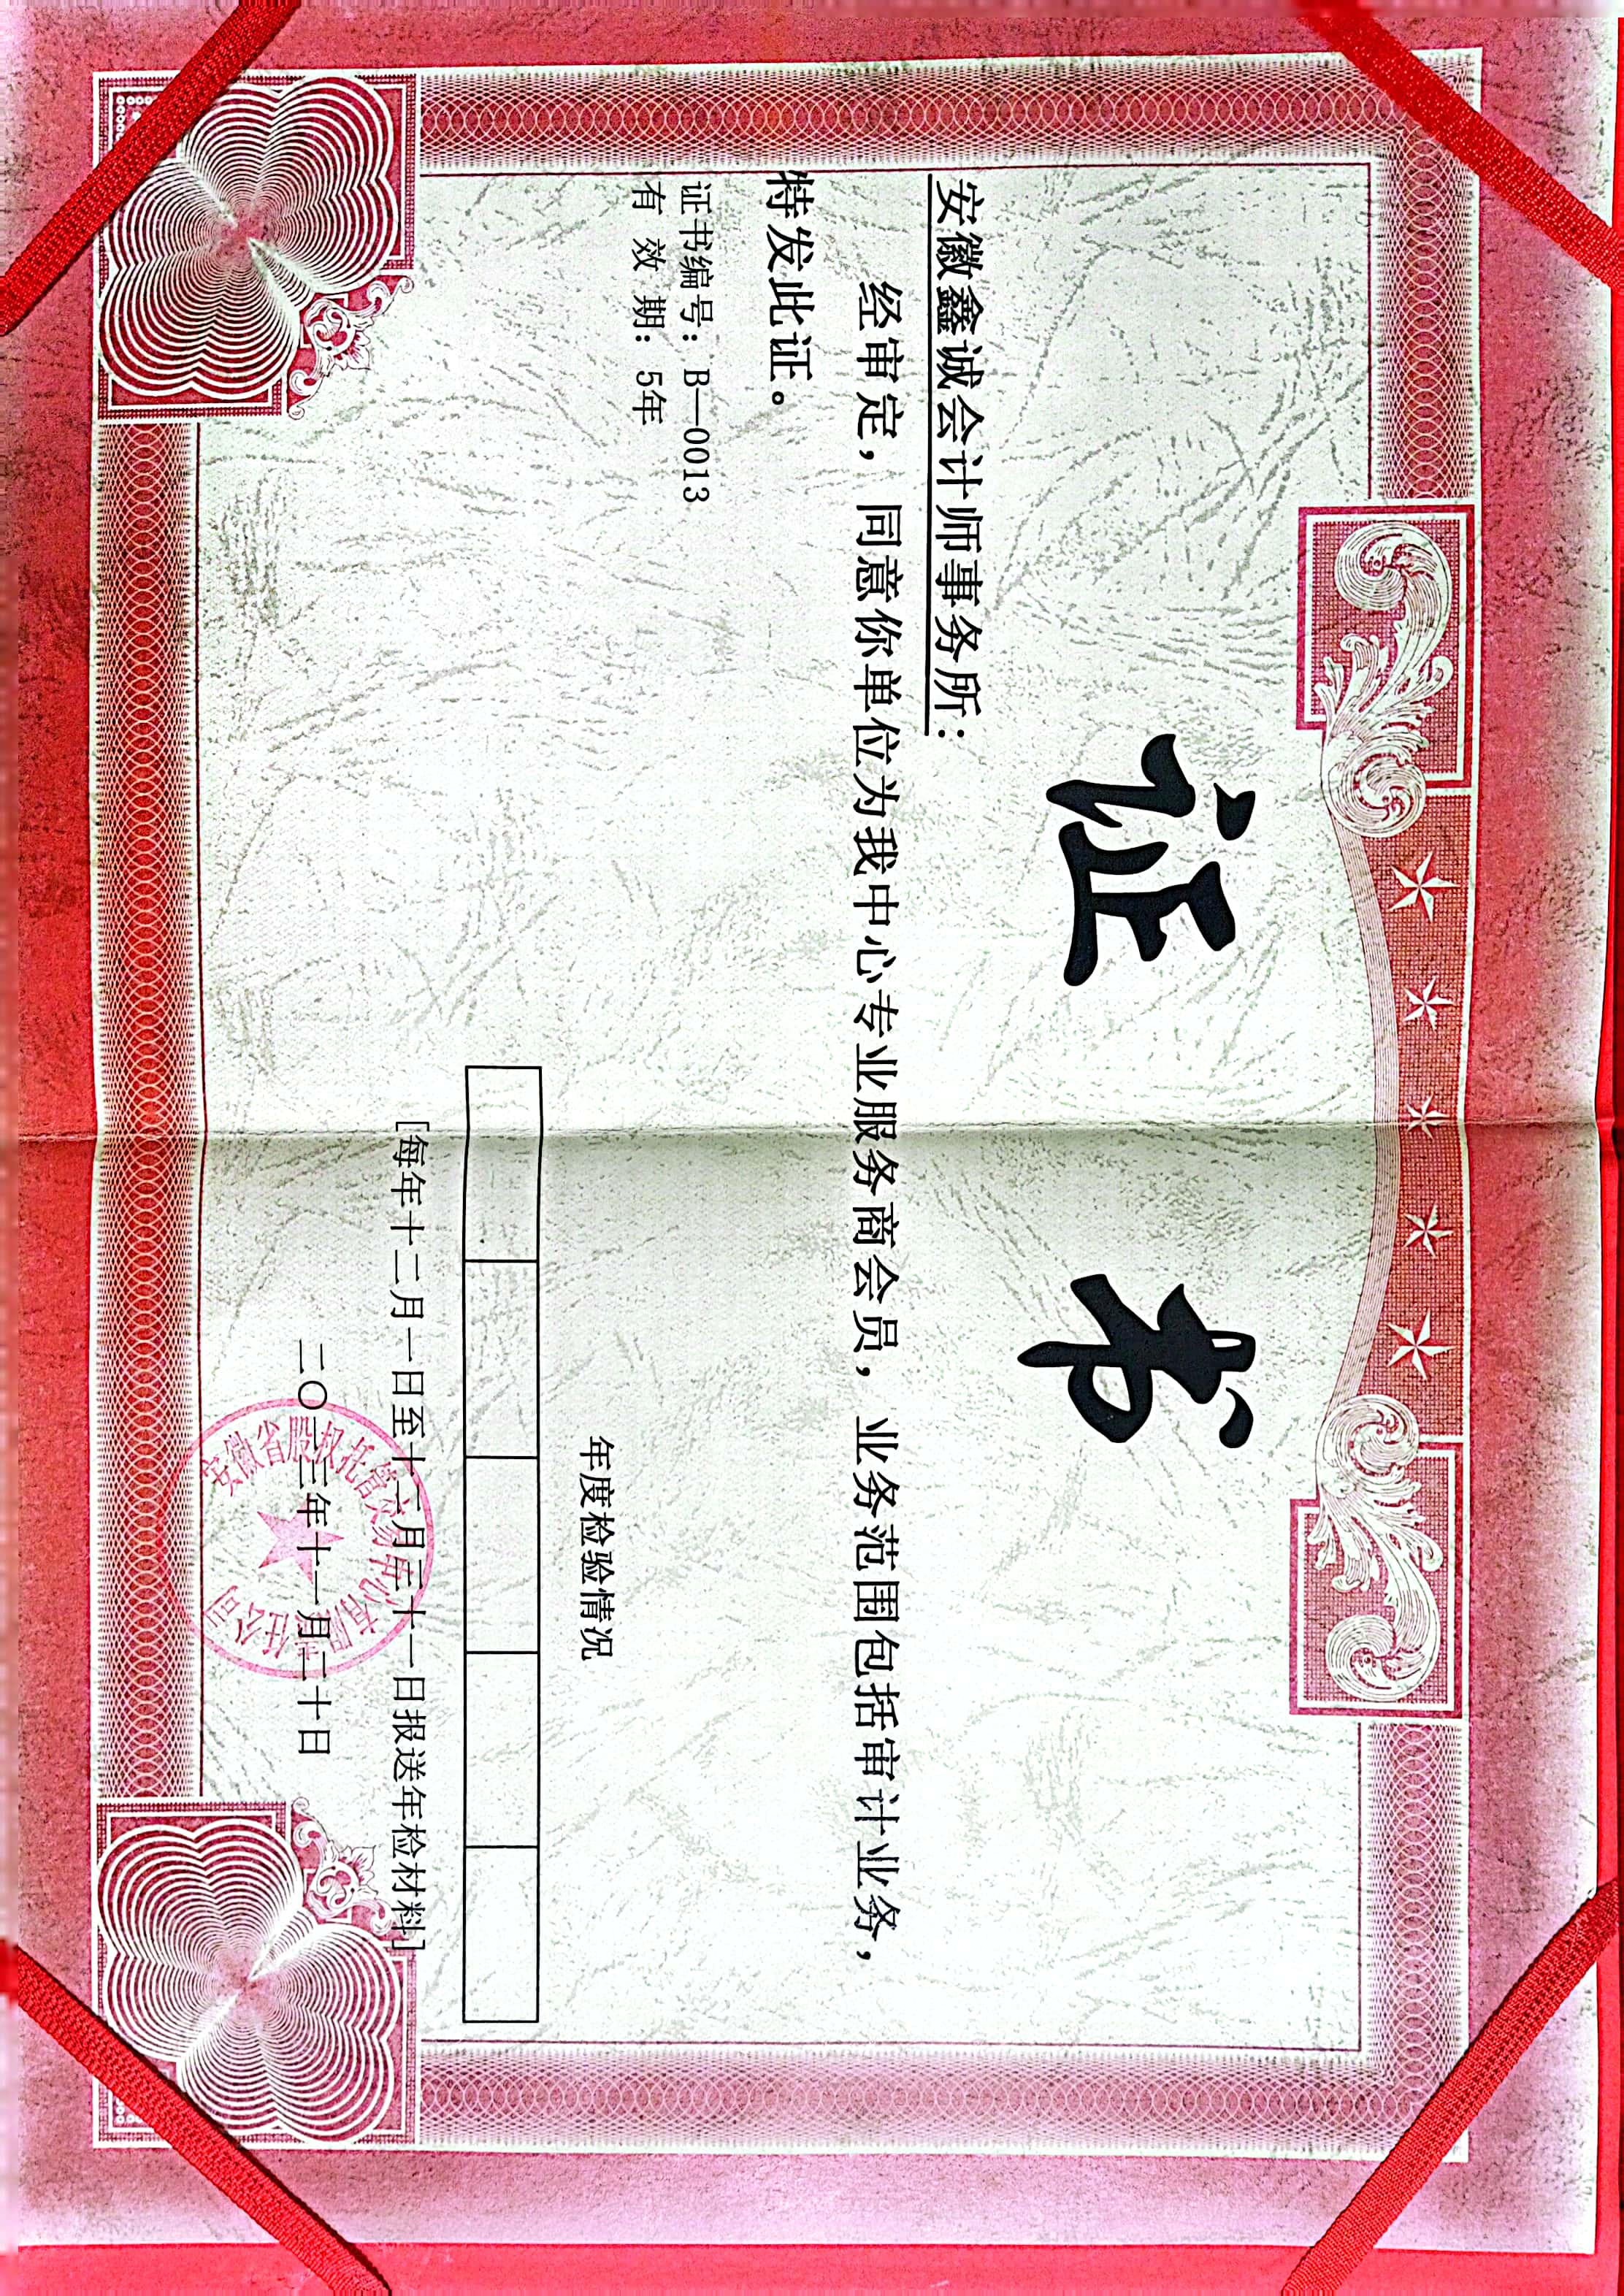 证书
安徽鑫诚会计师事务所：
经审定，同意你单位为我中心专业服务商会员，业务范围包括审计业务，
特发此证。
证书编号：B—0013
有 效 期：5年
年度检验情况
[每年十二月一日至十二月三十一日报送年检材料]
二〇一三年十一月二十日
安徽省股权托管交易中心有限责任公司